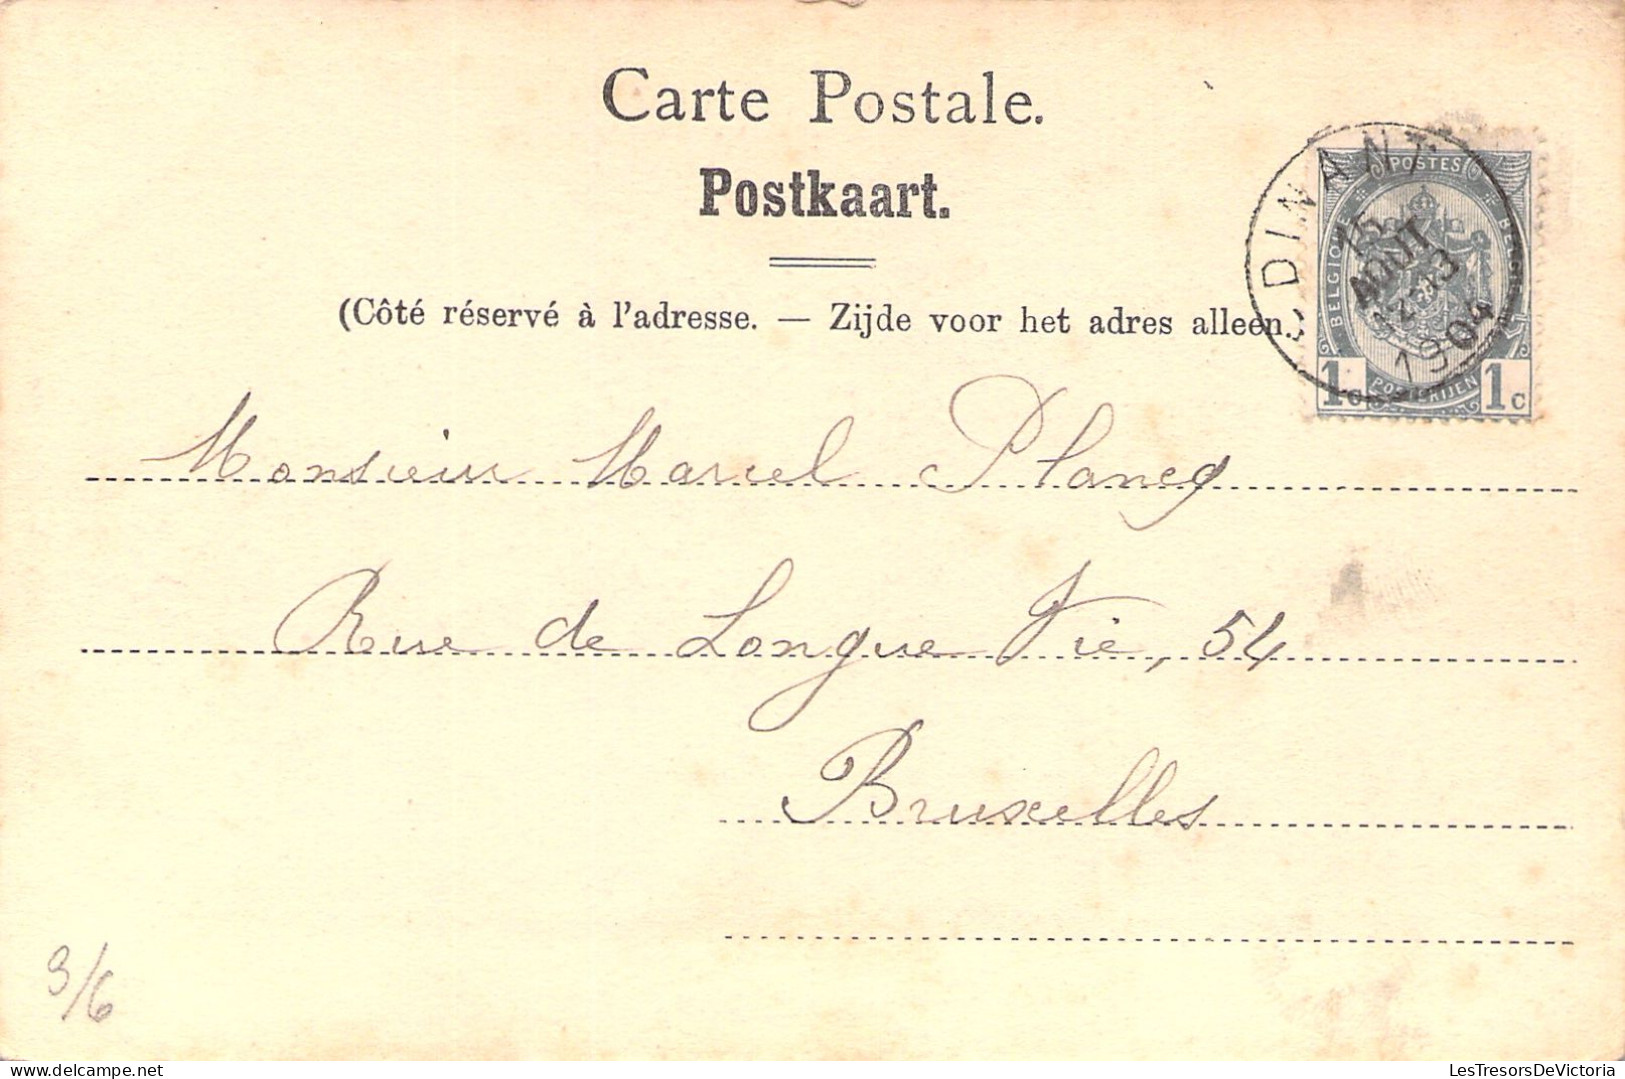 Carte Postale.
Postkaart.
(Côté réservé à l'adresse. — Zijde voor het adres alleen.)
DINANT
15
AOUT
12-13
1904
POSTES
BELGIQUE
1c 1c
Monsieur Marcel Plancq
Rue de Longue Vie, 54
Bruxelles
3/6
www.LesTresorsDeVictoria